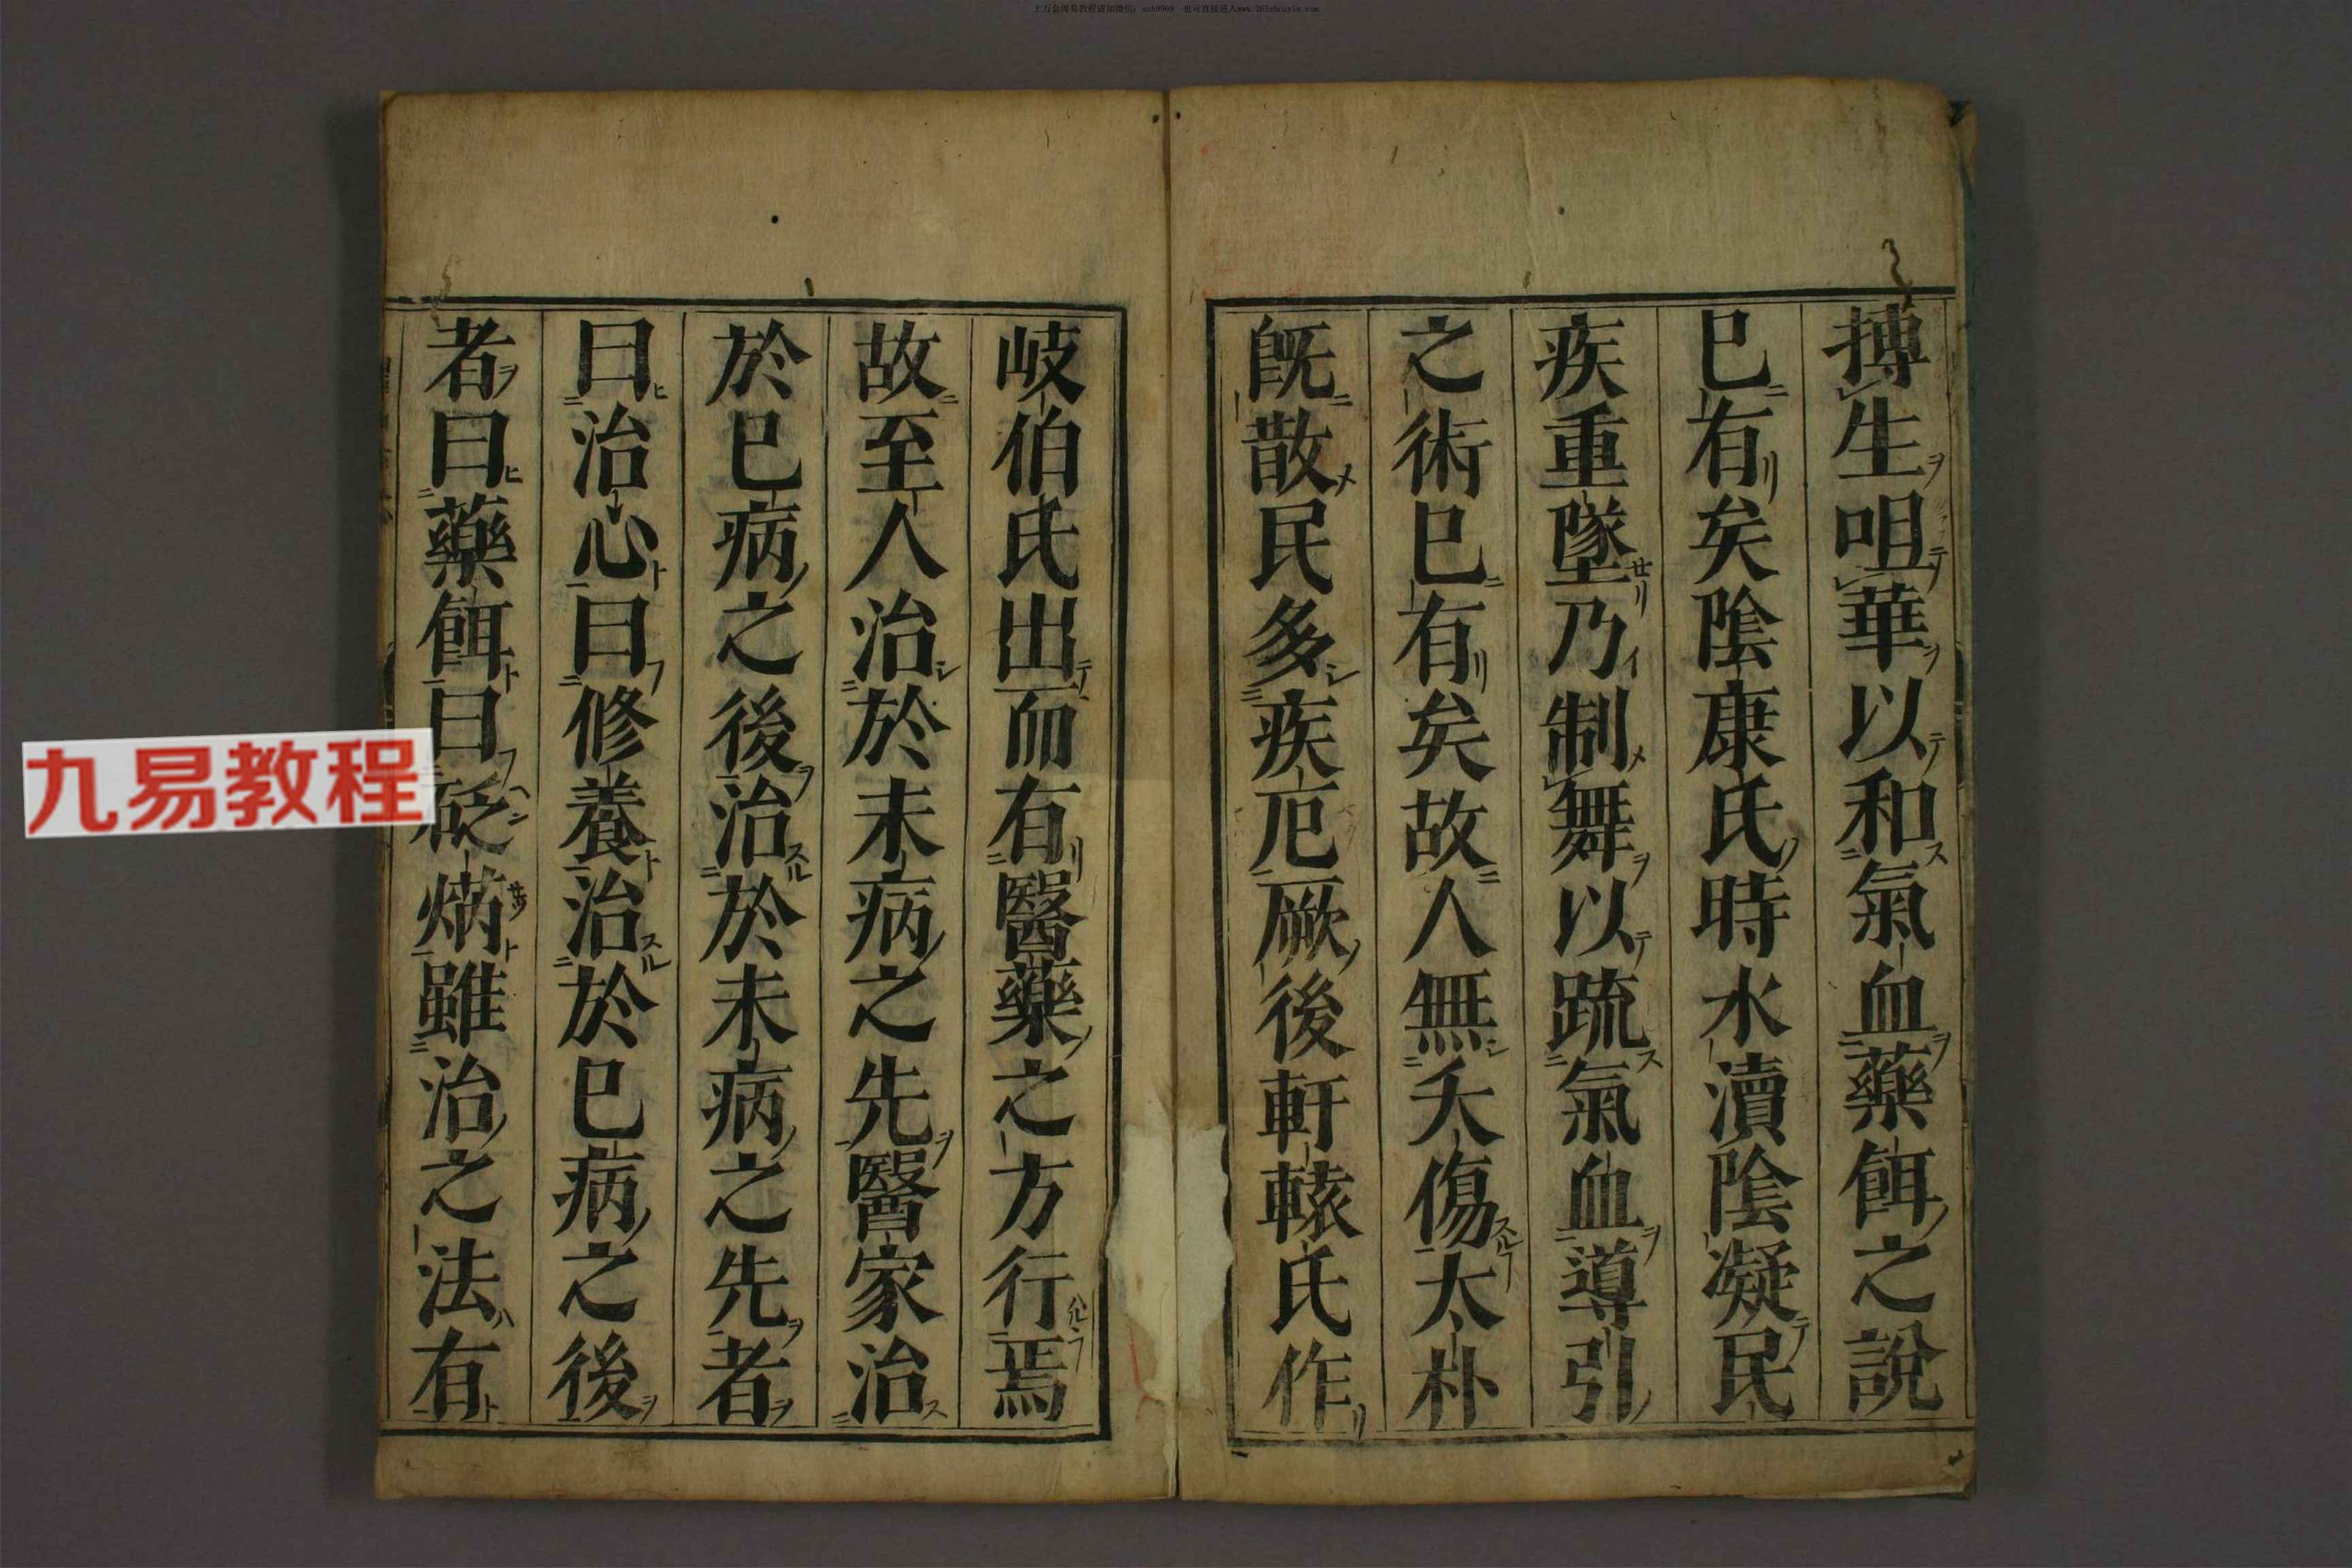 上万套周易教程请加微信：ssh0969 也可直接进入www.265zhouyim.com
搏生咀華以和氣血藥餌之說
巳有矣陰康氏時水瀆陰凝民
疾重墜乃制舞以疏氣血導引
之術巳有矣故人無夭傷太朴
旣散民多疾厄厥後軒轅氏作
岐伯氏出而有醫藥之方行焉
故至人治於未病之先醫家治
於巳病之後治於未病之先者
曰治心曰修養治於巳病之後
者曰藥餌曰砭焫雖治之法有
九易教程